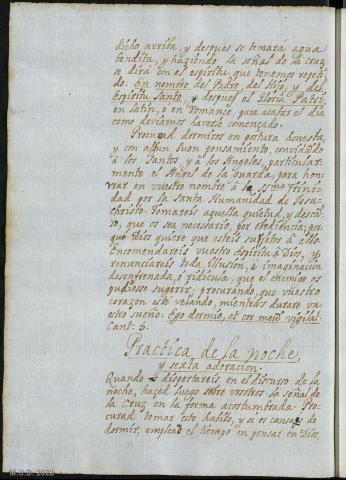 dicho arriba, y despues se tomará agua
bendita, y haziendo la señal de la cruz
se dirá con el espiritu, que tenemos
En nombre del Padre, del Hijo, y del
Espiritu Santo, y despues el Gloria Patri
en latin, o en Romance, para acabar el dia
como deviamos haverle començado.
Procurad dormiros en postura honesta,
y con algun buen pensamiento, convidãdo
à los Santos, y à los Angeles, particular-
mente el Angel de la guarda, para hon-
rar en vuestro nombre à la SSma Trini-
dad por la Santa Humanidad de Jesu-
christo. Tomareis aquella quietud, y descã-
so, que os sea necesario, por obediencia; por-
que Dios quiere que esteis sujetos à ello.
Encomendareis vuestro Espiritu à Dios, y
renunciareis toda illusion, è imaginacion
desenfrenada, ò ridicula, que el enemigo os
pudiesse sugerir, procurando, que vuestro
corazon esté velando, mientras durare vu-
estro sueño: Ego dormio, et cor meũ vigilat.
Cant. 5.
Practica de la noche,
y sexta adoracion.
Quando dispertareis en el discurso de la
noche, hazed luego sobre vosotros la señal de
la Cruz en la forma acostumbrada. Pro-
curad tomar este habito, y si os cansais de
dormir, emplead el tiempo en pensar en Dios,